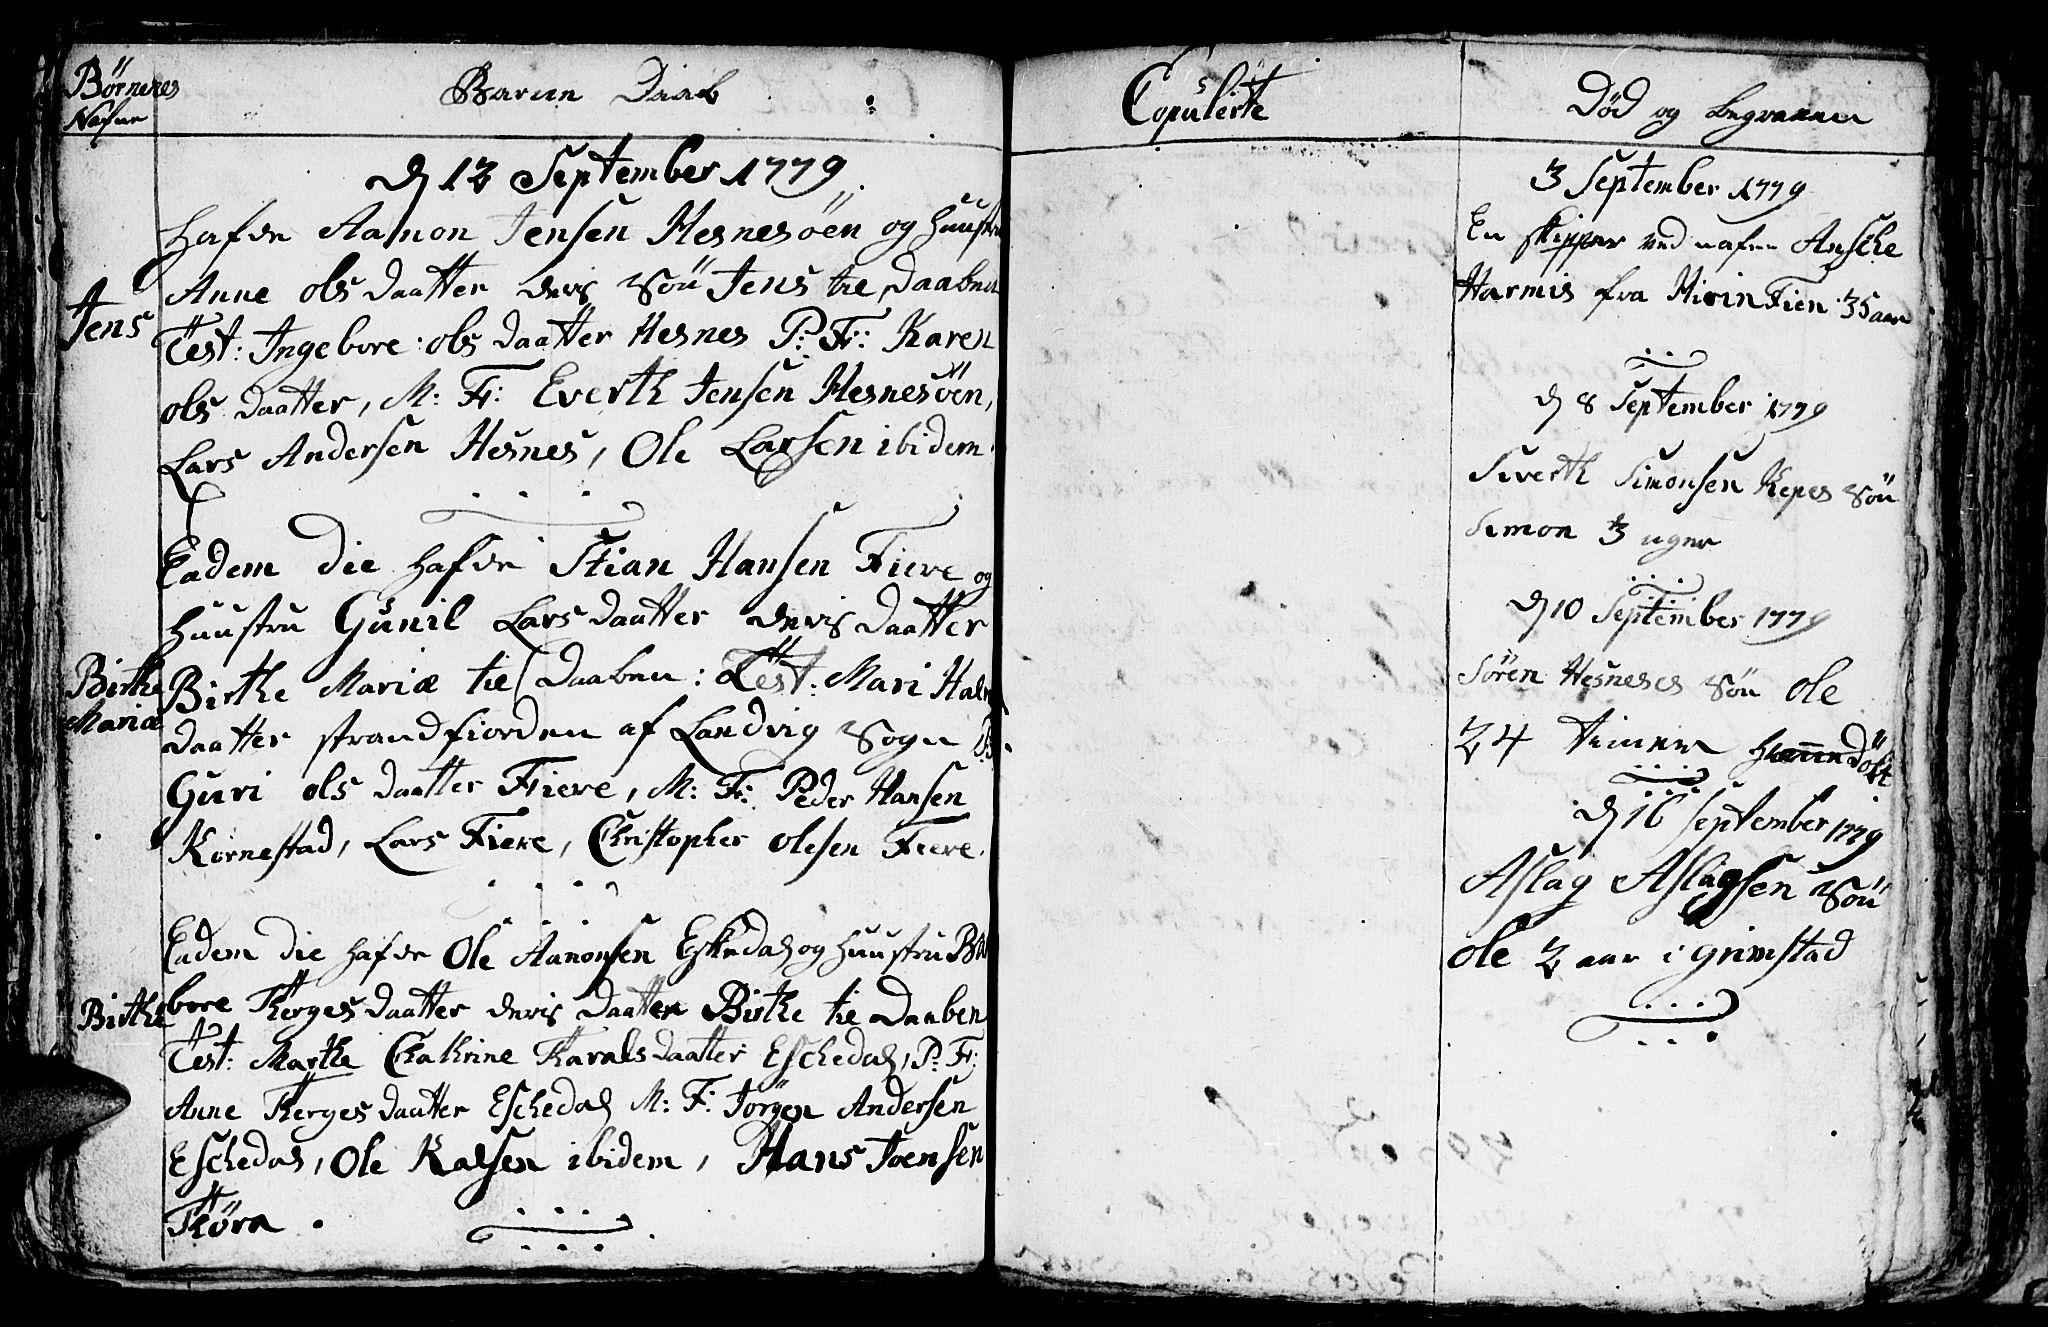 Børnenes
Nafne
Barne Daab
d 12 September 1779
Hafde Aamon Jensen Hesnesöen og Huustru
Anne ols daatter deris Sön Jens til Daaben
Jens
Test: Ingebore ols daatter Hesnes P: F: Karen
ols daatter, M: F: Everth Jensen Hesnesöen,
Lars Andersen Hesnes, Ole Larsen ibidem
Eadem die hafde Stian Hansen Fiere og
Huustru Gunil Lars daatter deris daatter
Birthe Mariæ
Birthe Mariæ til Daaben: Test: Mari Hals
daatter strandfiorden af Landvig Sogn P:
Guri ols daatter Fiere, M: F: Peder Hansen
Kornestad, Lars Fiere, Christopher olesen Fiere.
Eadem die hafde Ole Aanonsen Eskedal og Huustru
bore Terges daatter deris daatter Birthe til Daaben
Birthe
Test: Marthe Chathrine Taralsdaatter Eschedal, P: F:
Anne Terges daatter Eschedal M: F: Jörgen Andersen
Eschedal, Ole Kalsen ibidem, Hans Joensen
Töra
Copulerte
Död og begravene
3 September 1779
En skipper ved nafn Ansche
Harmis fra Hirin Fien 35 aar
d 8 September 1779
Siverth Simonsen Kepes Sön
Simon 3 uger
d 10 September 1779
Sören Hesneses Sön ole
24 timer hiemmedöbt
d 16 September 1779
Aslag Aslagsen Sön
ole 2 aar i grimstad